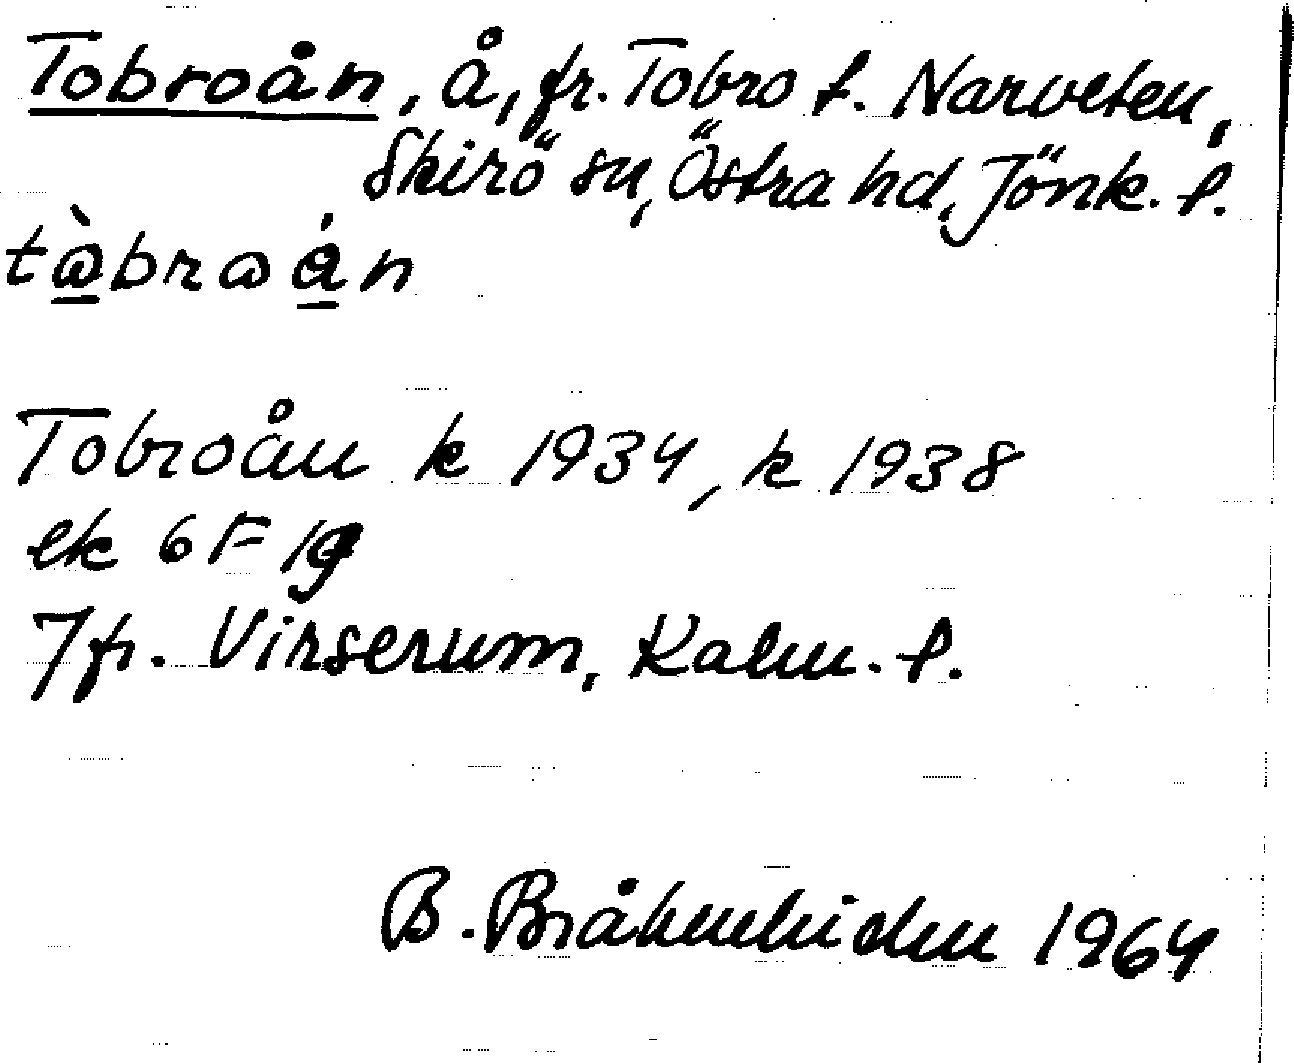 Tobroån, å, fr. Tobro t. Narveten,
Skirö sn, Östra hd, Jönk. l.
Tobroån k 1934, k 1938
ek 6F 1g
Jfr. Virserum, Kalm. l.
B. 1964